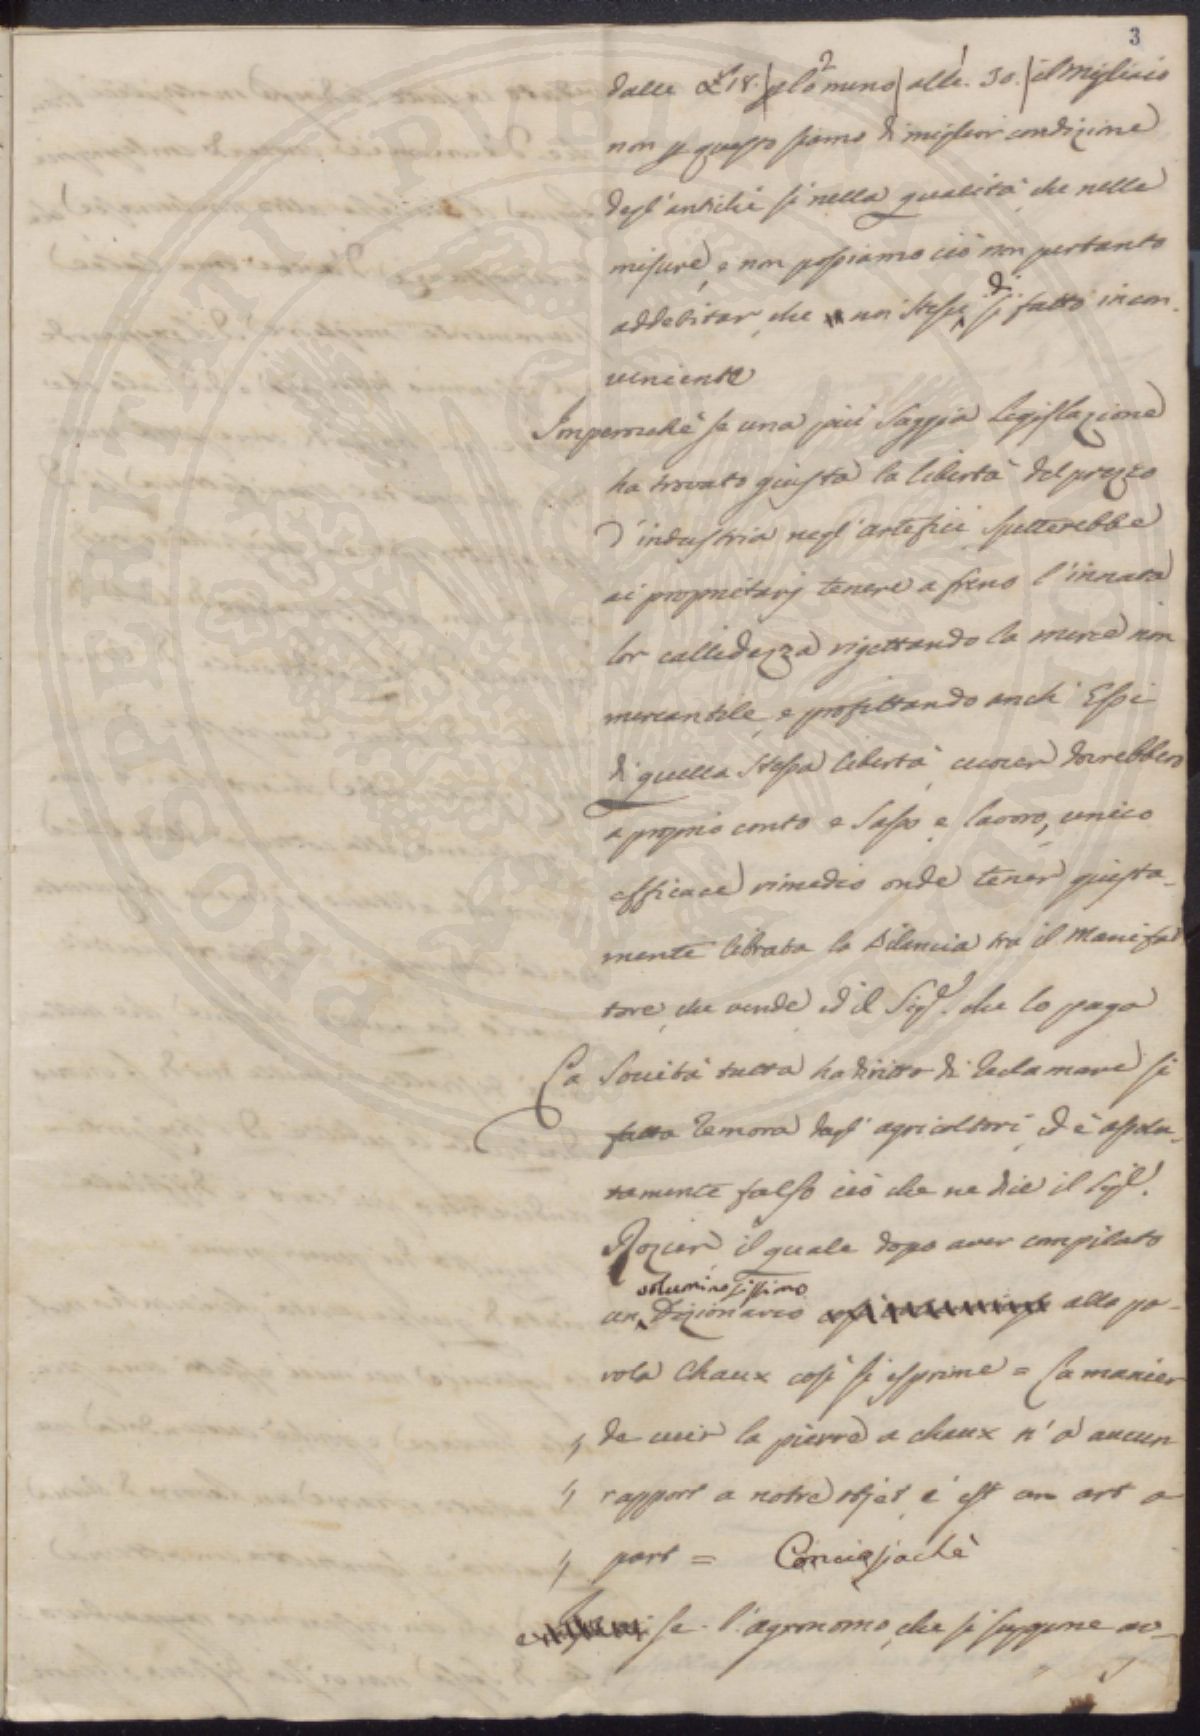 3
dalle £ 18. | p lo meno | alle. 30. | il migliaio
non p questo siamo di miglior condizione
degl' antichi si nella qualità, che nelle
misure, e non possiamo ciò non pertanto
addebitar, che noi stessi di si fatto incon-
veniente
Imperocchè se una più saggia Legislazione
ha trovato giusta la libertà del prezzo
d'industria negl' artefici spetterebbe
ai proprietarj tenere a freno l'innata
lor callidezza rigettando la merce non
mercantile, e profittando anch' Essi
di quella stessa libertà, cuocer dovrebbero
a proprio conto e sasso e lavoro, unico
efficace rimedio onde tener giusta-
mente librata la bilancia tra il Manifat
tore che vende ed il Sigr. che lo paga
La Società tutta ha diritto di reclamare si
fatta remora dagl' agricoltori, ed è assolu-
tamente falso ciò che ne dice il Sigr.
Rozier, il quale dopo aver compilato
un voluminosissimo Dizionario alla pa-
rola Chaux così si esprime = La manier
" de cuir la pierre a chaux n'a aucun
" rapport a notre objet c'est un art a
" part = Conciosiachè
se l'agronomo, che si suppone av-
PROSPERITATI PUBLICAE AUGENDAE